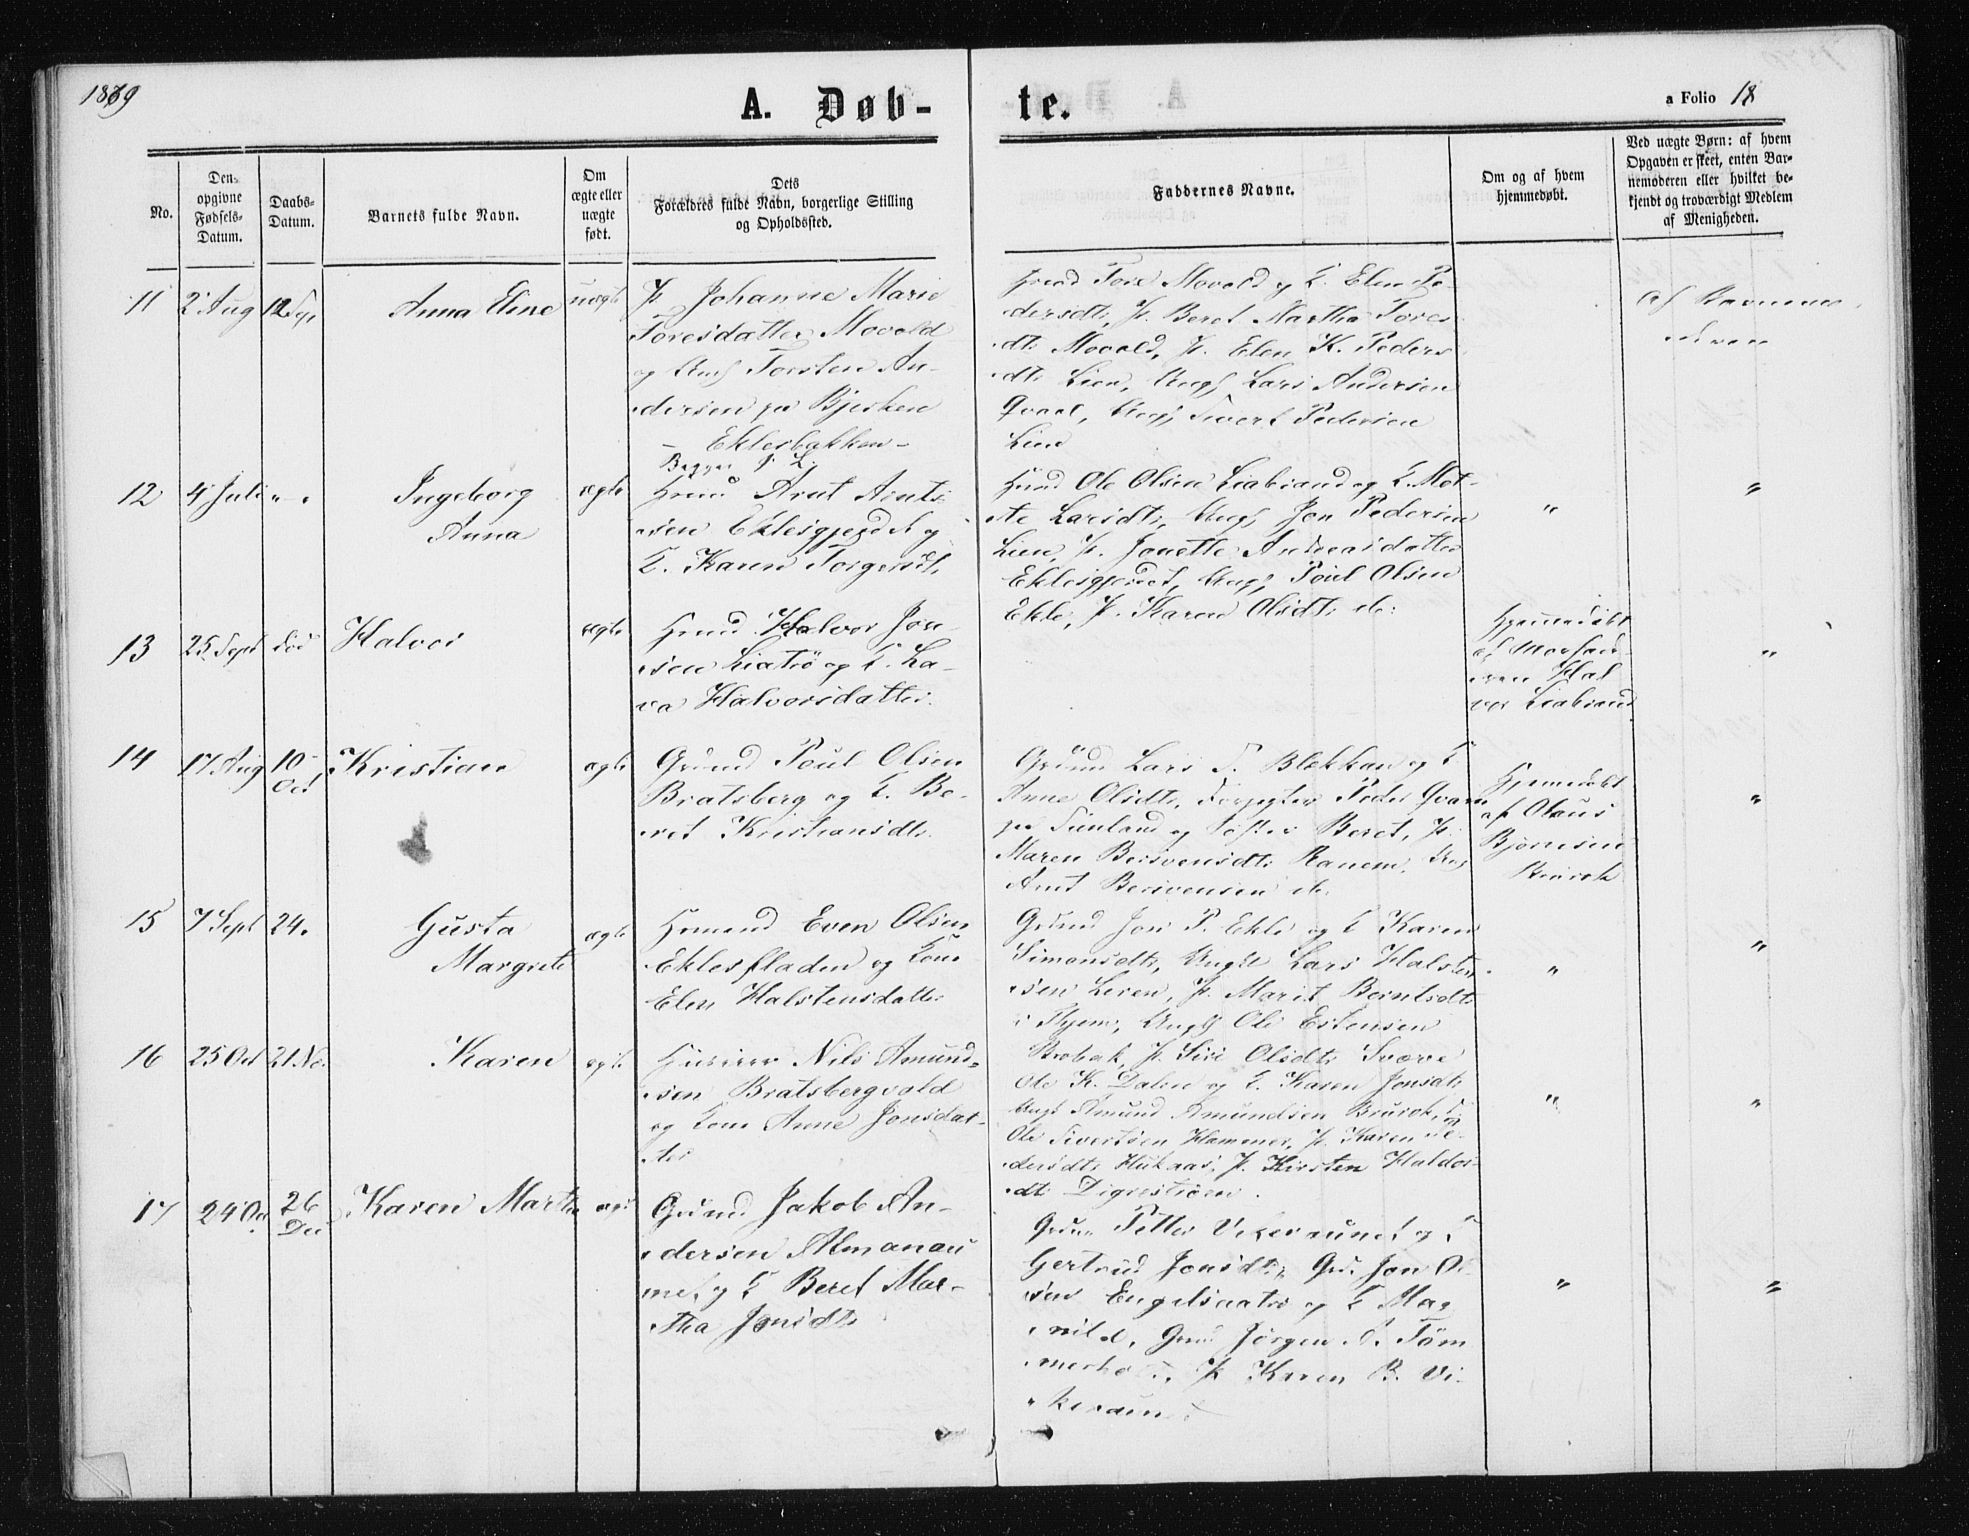 1869
A. Døb-
te.
a Folio 18
No.
Den opgivne Fødsels-Datum.
Daabs-Datum.
Barnets fulde Navn.
Om ægte eller uægte født.
Dets Forældres fulde Navn, borgerlige Stilling og Opholdssted.
Faddernes Navne.
Om og af hvem hjemmedøbt.
Ved uægte Børn: af hvem Opgaven er skeet, enten Barnemoderen eller hvilket bekjendt og troværdigt Medlem af Menigheden.
11
2 Aug
12 Sep
Anna Eline
uægte
P. Johanne Marie
Toresdatter Movold
og Ung Torsten An-
dersen paa Bjerken
Eklesbakken -
Begges
Tore Movold og K. Elen Pe-
dersdt, P. Beret Martha Tores
dt Movold, P. Elen K. Peders
dt Lien, Ung Lars Andersen
Qvaal, Ung Sivert Pedersen
Lien
Af Barnemo
deren
12
4 Juli
" "
Ingeborg
Anna
ægte
Hmd Arnt Arnt-
sen Eklesgjerdet og
K. Karen Torgersdt
Hmd Ole Olsen Liabrand og K. Met-
te Larsdt, Ung Jon Pedersen
Lien, P. Jonette Andreasdatter
Eklesgjerdet, Ung Poul Olsen
Ekle, P. Karen Olsdt do:
"
"
13
25 Sept
død
Halvor
ægte
Hmd Halvor Jon
sen Liatrø og K. La-
va Halvorsdatter.
Hjemmedøbt
af Morfad-
eren Hal
vor Liabrand
"
14
17 Aug
10
Oct
Kristian
ægte
Grdmd Poul Olsen
Bratsberg og K. Be-
ret Kristiansdt.
Grdm Lars T. Blekkan og K
Anne Olsdt, Forpagter Peder Qvam
paa Sunland og Søster Beret, P.
Maren Bersvensdt Ranem, Ung
Arnt Bersvensen do.
Hjemmedøbt
af Olaus
Bjørnsen
Brurok
"
15
7 Sept
24.
Gusta
Margrete
ægte
Hmand Even Olsen
Eklesfladen og Kone
Elen Halstensdatter
Grdmd Jon P. Ekle og K Karen
Simonsdt, Ungk Lars Halsten
sen Leren, P. Marit Berntsdt
Ungk Ole Estensen
Brobak, P. Siri Olsdt Svære
"
"
16
25 Oct
21 No.
Karen
ægte
Nils Amund-
sen Bratsbergvold
og Kone Anne Jonsdat-
ter
Ole K. Dalen og K. Karen Jonsdt
Ungk Amund Amundsen Brurok,
Ole Sivertsen Hammer, P. Karen Pe-
dersdt Hukaas, P. Kirsten Haldor-
dt Digrestrøen.
"
"
17
24 Oct
26
Dec
Karen Martha
ægte
Grdmd Jakob An-
dersen
og K Beret Mar-
tha Jonsdt
Petter Vikeraunet og K
Gertrud Jonsdt, Grd. Jon Ol
sen Engelsaatrø og K Mag
nild, Grmd Jørgen A. Tøm
merho, P. Karen B. Vi-
keraunet
"
"